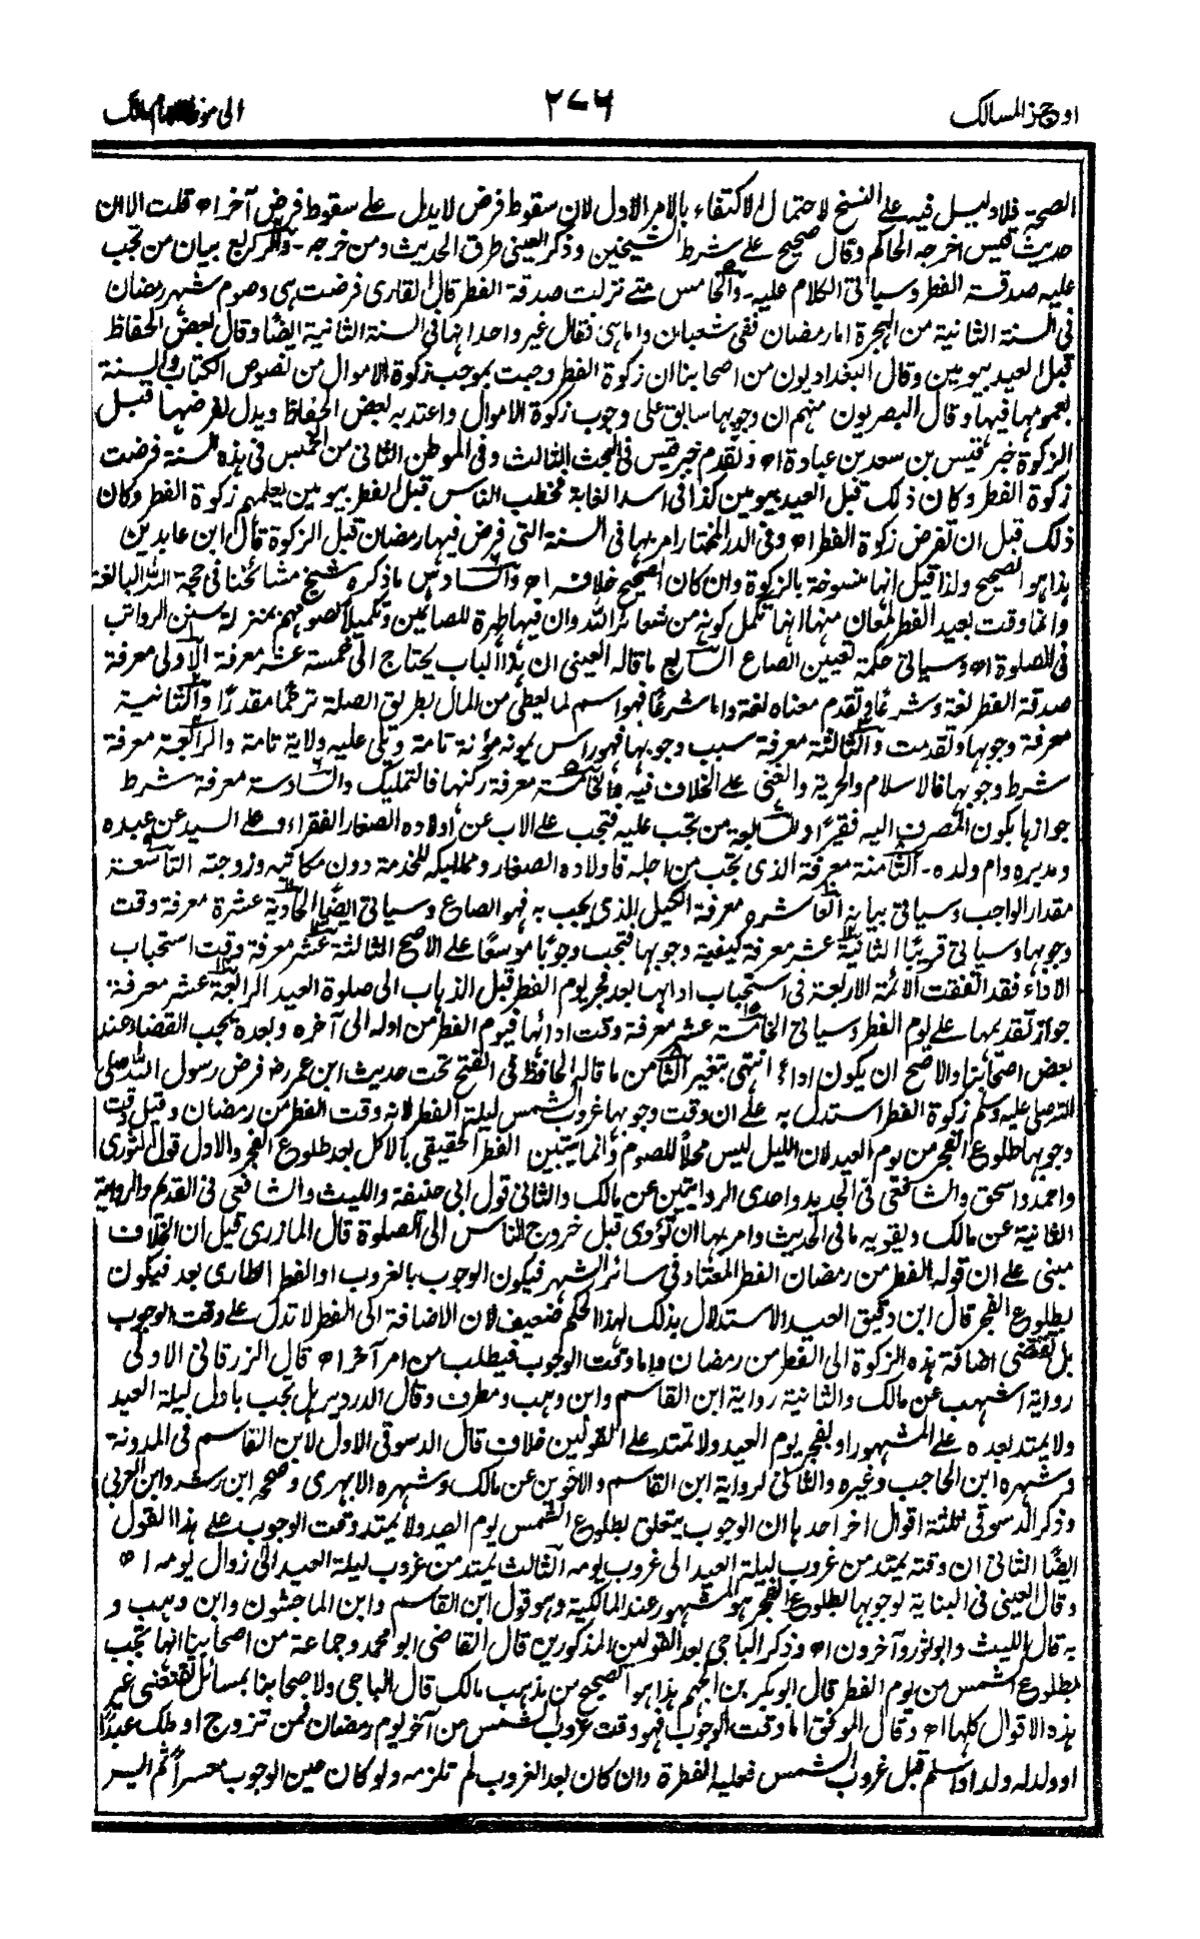 اوجز المسالك ٢٧٦ الى موطا امام مالك
الصحة فلا دليل فيه على النسخ لاحتمال الاكتفاء بالامر الاول لان سقوط فرض لا يدل على سقوط فرض آخر اه قلت الا ان
حديث قيس اخرجه الحاكم وقال صحيح على شرط الشيخين وذكر العينى طرق الحديث ومن خرجه - والرابع بيان من تجب
عليه صدقة الفطر وسياتى الكلام عليه - والخامس متى نزلت صدقة الفطر قال القارى فرضت هى وصوم شهر رمضان
فى السنة الثانية من الهجرة اما رمضان ففى شعبان واما هى فقال غير واحد انها فى السنة الثانية ايضا وقال بعض الحفاظ
قبل العيد بيومين وقال البغداديون من اصحابنا ان زكوة الفطر وجبت بموجب زكوة الاموال من نصوص الكتاب والسنة
بعمومها فيها وقال البصريون منهم ان وجوبها سابق على وجوب زكوة الاموال واعتد به بعض الحفاظ ويدل لفرضها قبل
الزكوة خبر قيس بن سعد بن عبادة اه وتقدم خبر قيس فى البحث الثالث وفى الموطن الثانى من الخميس فى هذه السنة فرضت
زكوة الفطر وكان ذلك قبل العيد بيومين كذا فى اسد الغابة فخطب الناس قبل الفطر بيومين يعلمهم زكوة الفطر وكان
ذلك قبل ان تفرض زكوة الفطر اه وفى الدر المختار امر بها فى السنة التى فرض فيها رمضان قبل الزكوة قال ابن عابدين
هذا هو الصحيح ولذا قيل انها منسوخة بالزكوة وان كان الصحيح خلافه اه والسادس ما ذكره شيخ مشائخنا فى حجة الله البالغة
وانما وقت بعيد الفطر لمعان منها انها تكمل كونه من شعائر الله وان فيها طهرة للصائمين وتكميلا لصومهم بمنزلة سنن الرواتب
فى الصلوة اه وسياتى حكمة تعيين الصاع السابع ما قاله العينى ان هذا الباب يحتاج الى خمسة عشر معرفة الاولى معرفة
صدقة الفطر لغة وشرعا وتقدم معناه لغة واما شرعا فهو اسم لما يعطى من المال بطريق الصلة ترحما مقدرا والثانية
معرفة وجوبها وتقدمت والثالثة معرفة سبب وجوبها فهو راس يمونه مؤنة تامة ويلى عليه ولاية تامة والرابعة معرفة
شرط وجوبها فالاسلام والحرية والغنى على الخلاف فيه والخامسة معرفة ركنها فالتمليك والسادسة معرفة شرط
جوازها بكون المصرف اليه فقيرا والسابعة من تجب عليه فتجب على الاب عن اولاده الصغار الفقراء وعلى السيد عن عبده
ومدبره وام ولده - الثامنة معرفة الذى تجب من اجله فاولاده الصغار ومماليكه للخدمة دون مكاتبه وزوجته التاسعة
مقدار الواجب وسياتى بيانه العاشره معرفة الكيل الذى يجب به فهو الصاع وسياتى ايضا الحادية عشرة معرفة وقت
وجوبها وسياتى قريبا الثانية عشر معرفة كيفية وجوبها فتجب وجوبا موسعا على الاصح الثالثة عشر معرفة وقت استحباب
الاداء فقد اتفقت الائمة الاربعة فى استحباب ادائها بعد فجر يوم الفطر قبل الذهاب الى صلوة العيد الرابعة عشر معرفة
جواز تقديمها على يوم الفطر وسياتى الخامسة عشر معرفة وقت ادائها فيوم الفطر من اوله الى آخره وبعده يجب القضاء عند
بعض اصحابنا والاصح ان يكون اداء انتهى بتغير الثامن ما قاله الحافظ فى الفتح تحت حديث ابن عمر رض فرض رسول الله صلى
الله عليه وسلم زكوة الفطر استدل به على ان وقت وجوبها غروب الشمس ليلة الفطر لانه وقت الفطر من رمضان وقيل وقت
وجوبها طلوع الفجر من يوم العيد لان الليل ليس محلا للصوم وانما يتبين الفطر الحقيقى بالاكل بعد طلوع الفجر والاول قول الثورى
واحمد واسحق والشافعى فى الجديد واحدى الروايتين عن مالك والثانى قول ابى حنيفة والليث والشافعى فى القديم والرواية
الثانية عن مالك ويقويه ما فى الحديث وامر بها ان تؤدى قبل خروج الناس الى الصلوة قال المازرى قيل ان الخلاف
مبنى على ان قوله الفطر من رمضان الفطر المعتاد فى سائر الشهر فيكون الوجوب بالغروب او الفطر الطارى بعد فيكون
بطلوع الفجر قال ابن دقيق العيد الاستدلال بذلك لهذا الحكم ضعيف لان الاضافة الى الفطر لا تدل على وقت الوجوب
بل تقتضى اضافة هذه الزكوة الى الفطر من رمضان واما وقت الوجوب فيطلب من امر آخر اه قال الزرقانى الاولى
رواية اشهب عن مالك والثانية رواية ابن القاسم وابن وهب ومطرف وقال الدردير بل يجب باول ليلة العيد
ولا يمتد بعده على المشهور او بفجر يوم العيد ولا يمتد على القولين خلاف قال الدسوقى الاول لابن القاسم فى المدونة
وشهره ابن الحاجب وغيره والثانى لرواية ابن القاسم والاخوين عن مالك وشهره الابهرى وصححه ابن رشد وابن العربى
وذكر الدسوقى ثلثة اقوال اخر احدها ان الوجوب يتعلق بطلوع الشمس يوم العيد ولا يمتد وقت الوجوب على هذا القول
ايضا الثانى ان وقته يمتد من غروب ليلة العيد الى غروب يومه الثالث يمتد من غروب ليلة العيد الى زوال يومه اه
وقال العينى فى البناية لوجوبها بطلوع الفجر هو المشهور عند المالكية وهو قول ابن القاسم وابن الماجشون وابن وهب و
به قال الليث وابو ثور وآخرون اه وذكر الباجى بعد القولين المذكورين قال القاضى ابو محمد وجماعة من اصحابنا انها تجب
بطلوع الشمس من يوم الفطر قال ابو بكر بن الجهم هذا هو الصحيح من مذهب مالك قال الباجى ولاصحابنا بمسائل تقتضى غير
هذه الاقوال كلها اه وقال الموفق اما وقت الوجوب فهو وقت غروب الشمس من آخر يوم رمضان فمن تزوج او ملك عبدا
او ولد له ولد او اسلم قبل غروب الشمس فعليه الفطرة وان كان بعد الغروب لم تلزمه ولو كان حين الوجوب معسرا ثم ايسر